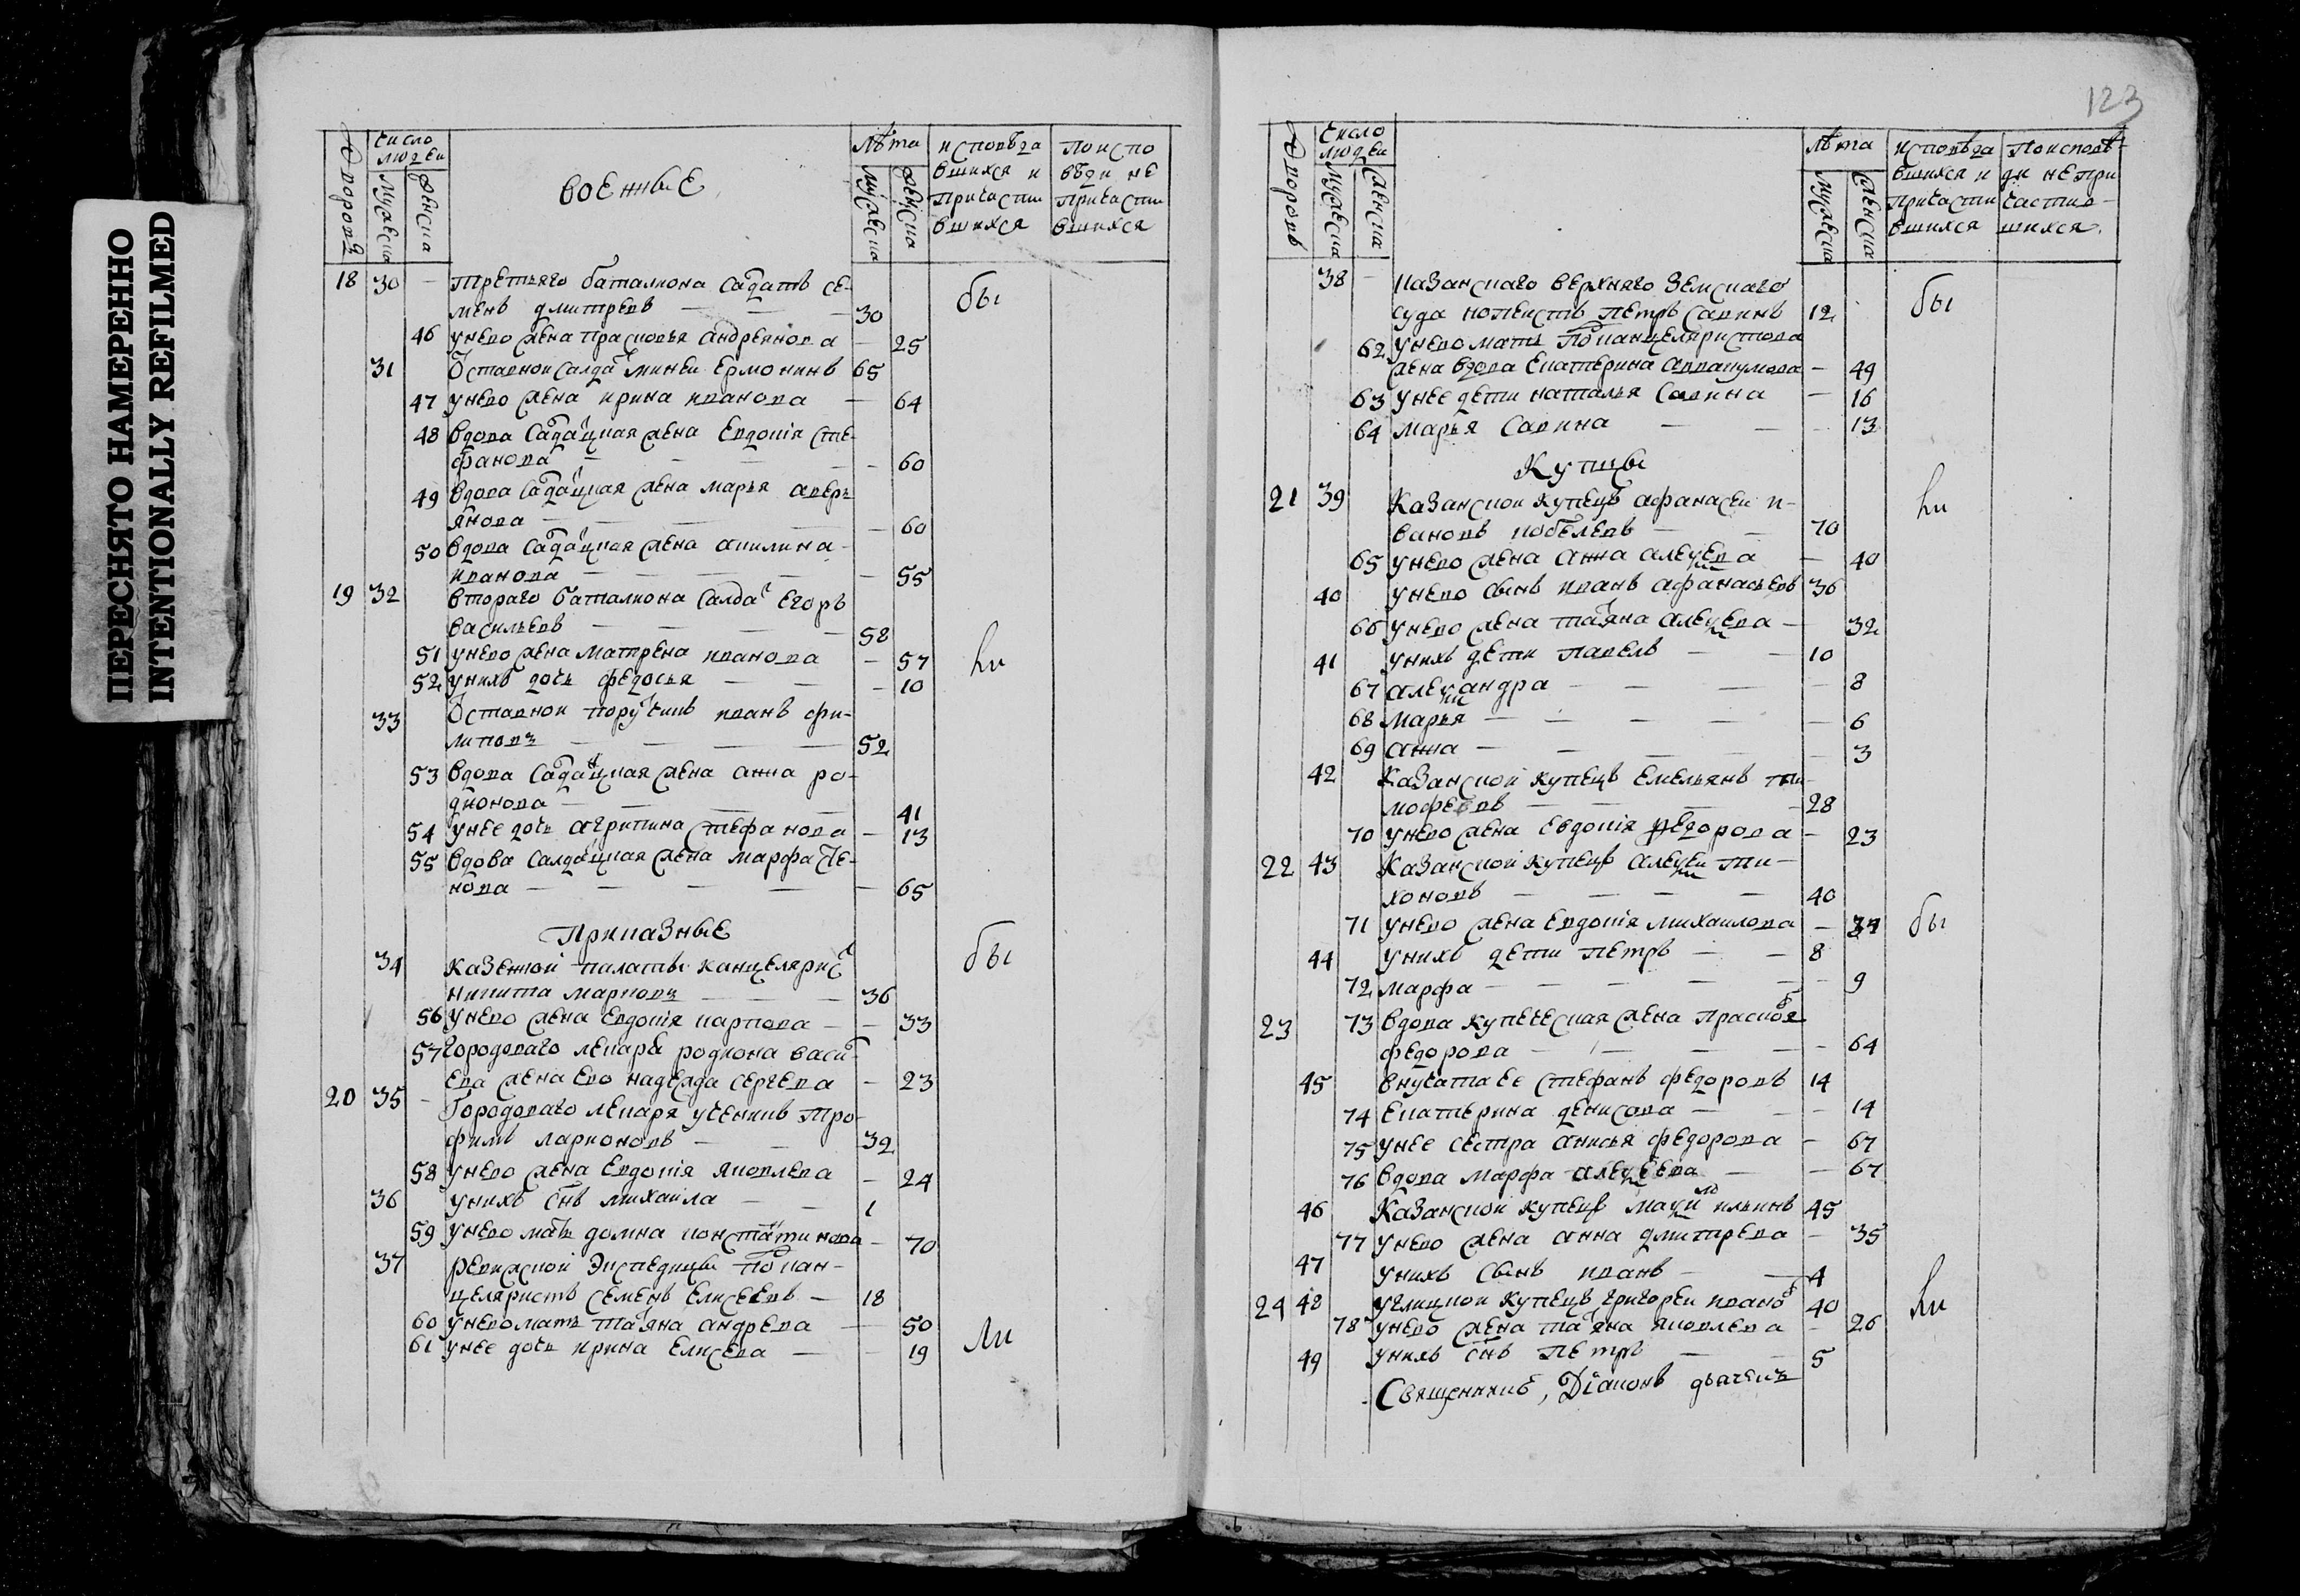 ПЕРЕСНЯТО НАМЕРЕННО
INTENTIONALLY REFILMED
Дворовъ
Число людеи
Мужеска
Женска
военные
лѣта
Мужеска
Женска
исповѣда
вшихся и
причасти
вшихся
по испо
вѣди не
причасти
вшихся
18 30 — третьяго баталиона садатъ се-
менъ дмитревъ — — 30
бы
46 унево жена прасковья андреянова — 25
31 Отставнои салдат минеи ермонинъ 65
47 унево жена ирина иванова — 64
48 вдова садацкая жена Евдокія сте-
фанова — — — — 60
49 вдова садацкая жена марья аверь
янова — — — 60
50 вдова садацкая жена акилина
иванова — — — — 55
19 32 втораго баталиона салдат Егоръ
васильевъ — — — 58
51 унево жена матрена иванова — 57
ли
52 унихъ дочь федосья — — — 10
33 Отставнои поручикъ иванъ фи-
липовъ — — — — 52
53 вдова садацкая жена анна ро-
дионова — — — — 41
54 унее дочь агрипина стефанова — 13
55 вдова салдацкая жена марфа
нова — — — — — 65
Приказные
34 казеннои палаты канцелярист
никита марковъ — — — 36
бы
56 унево жена Евдокія карпова — — 33
57 городоваго лекаря родиона васил
ева жена ево надежда сергеева — 23
20 35 — Городоваго лекаря ученикъ тро-
фимъ ларионовъ — — 32
58 унево жена Евдокія яковлева — 24
36 унихъ снъ михаила — — 1
59 унево мать домна константинова — 70
37 Экспедицы подкан-
целяристъ семенъ елисеевъ — 18
60 унево мать татяна андрева — 50
61 унее дочь ирина елисева — — 19
ли
123
Дворовъ
Число людеи
Мужеска
Женска
лѣта
Мужеска
Женска
исповѣда
вшихся и
причасти
вшихся
по исповѣ-
ди не при
частив-
шихся
38 — казанскаго верхняго земскаго
суда копеистъ петръ савинъ 12
бы
62 унево мать подканцеляристова
жена вдова Екатерина аввакумова — 49
63 унее дети наталья савина — 16
64 марья савина — — — 13
Купцы
21 39 Казанскои купецъ афанасеи и-
вановъ кобелевъ — — 70
ли
65 унево жена анна алексева — 40
40 унево сынъ иванъ афанасьевъ 36
66 унево жена татяна алексева — 32
41 унихъ дети павелъ — — 10
67 александра — — — — 8
68 марья — — — — — 6
69 анна — — — — 3
42 Казанскои купецъ Емельянъ ти-
мофеевъ — — — — 28
70 унево жена евдокія федорова — 23
22 43 Казанскои купецъ алексеи ти-
хоновъ — — — — 40
71 унево жена Евдокія михаилова — 34
бы
44 унихъ дети петръ — — 8
72 марфа — — — — — — 9
23 73 вдова купеческая жена прасковя
федорова — — — — — 64
45 внучата ее стефанъ федоровъ 14
74 екатерина денисова — — — 14
75 унее сестра анисья федорова — 67
76 вдова марфа алексеева — — 67
46 Казанскои купецъ максим ильинъ 45
77 унево жена анна дмитрева — 35
47 унихъ сынъ иванъ — — 4
24 48 углицкои купецъ григореи иванов 40
ли
78 унево жена татяна яковлева — 26
49 унихъ снъ петръ — — 5
Священникъ, Діаконъ дьячекъ